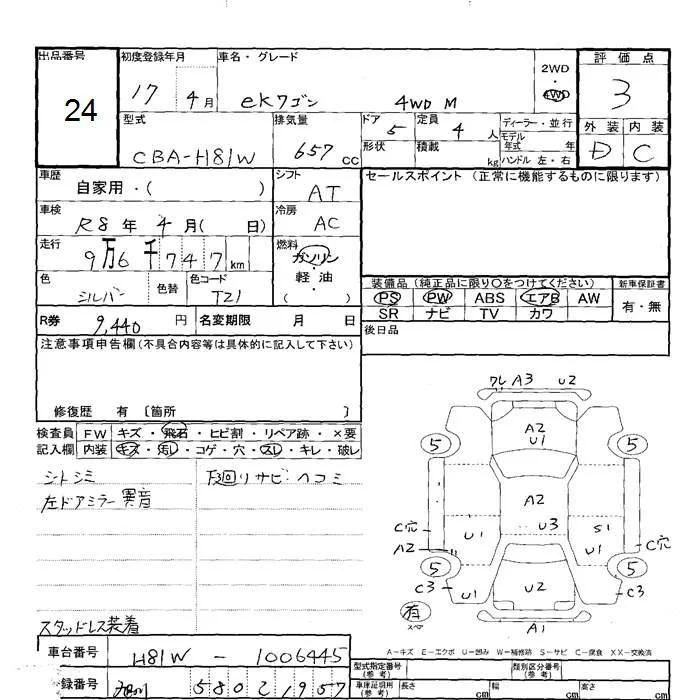 出品番号 初度登録年月 車名・グレード 2WD 評価点
24 17 4月 eKワゴン 4WD M 4WD 3
型式 排気量 ドア 5 定員 4人 ディーラー・並行 外装 内装
CBA-H81W 657cc 形状 積載 kg モデル年式 年 D C
ハンドル 左・右
車歴 自家用・( ) シフト AT セールスポイント (正常に機能するものに限ります)
車検 R8年4月( 日) 冷房 AC
走行 9万6千747km 燃料 ガソリン
軽油
( )
色 シルバー 色替 色コード T21
装備品(純正品に限り○をつけてください) 新車保証書
PS PW ABS エアB AW 有・無
SR ナビ TV カワ
R券 9,440円 名変期限 月 日 後日品
注意事項申告欄(不具合内容等は具体的に記入して下さい)
修復歴 有 〔箇所 〕
検査員 FW キズ・飛石・ヒビ割・リペア跡・×要
記入欄 内装 キズ・汚レ・コゲ・穴・スレ・キレ・破レ
シートシミ 下回リサビ・ヘコミ
左ドアミラー異音
スタッドレス装着
ワレ A3 U2
A2
U1
5 5
A2
U3
C穴 U1 S1 U1 C穴
A2
5 5
C3 U1 U2 C3
有
スペア
A1
A-キズ E-エクボ U-凹み W-補修跡 S-サビ C-腐食 XX-交換済
車台番号 H81W-1006445 型式指定番号(参考) 類別区分番号(参考)
録番号 580 2 1957 車庫証明用(参考) 長さ cm 幅 cm 高さ cm